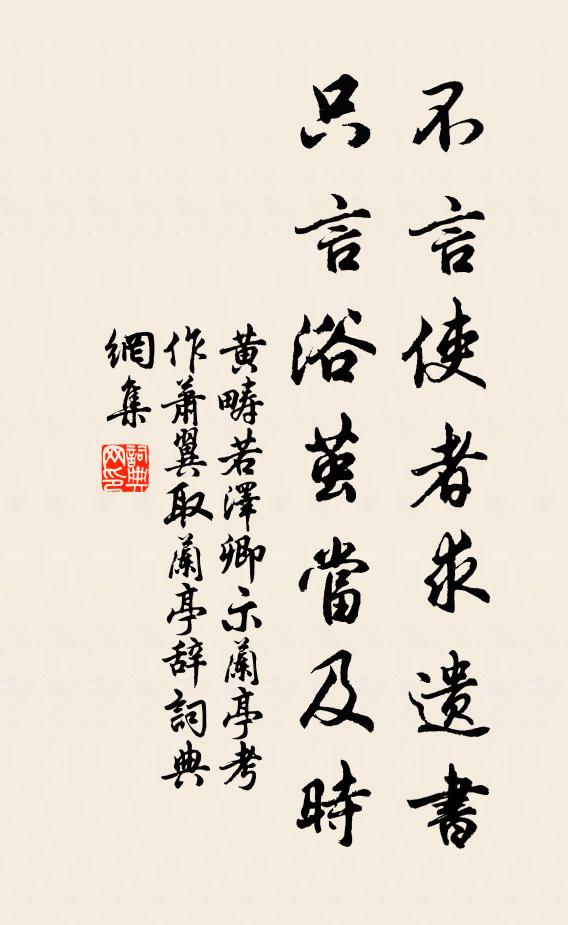 不言使者求遺書
只言浴茧當及時
黃疇若澤卿示蘭亭考
作蕭翼取蘭亭辞詞典
網集
詞典
网印